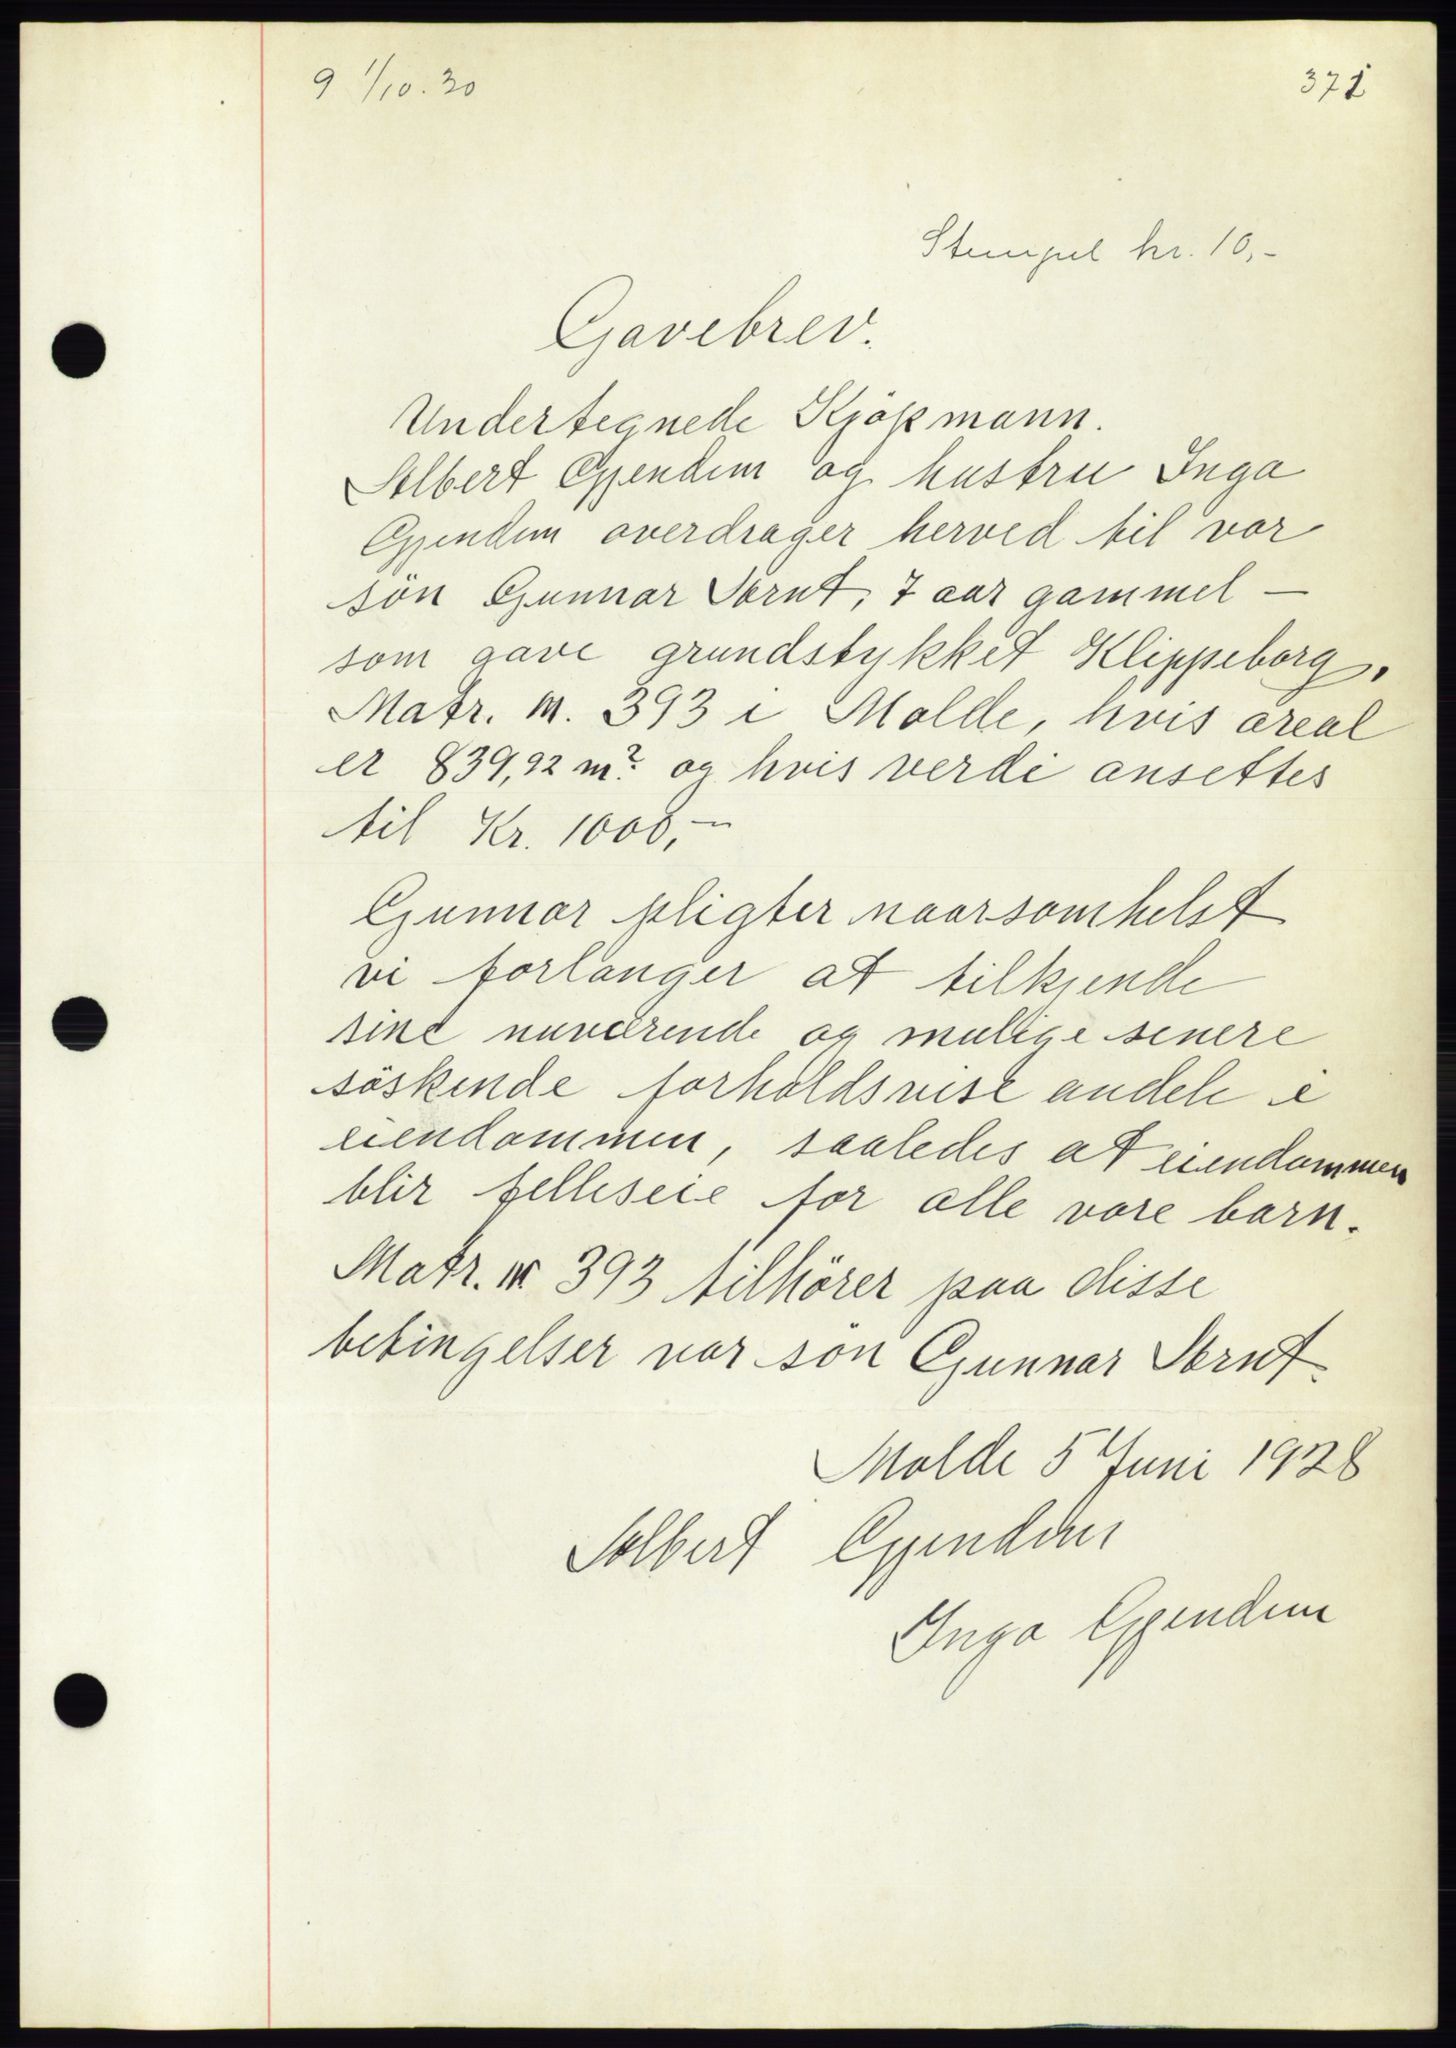 9 1/10.30
371
Stempel kr. 10,-
Gavebrev.
Undertegnede Kjöpmann.
Albert Gjendem og hustru Inga
Gjendem overdrager herved til vor
sön Gunnar Arnt, 7 aar gammel —
som gave grundstykket Klippeborg,
Matr. nr. 393 i Molde, hvis areal
er 839,92 m² og hvis verdi ansettes
til Kr. 1000,—
Gunnar pligter naarsomhelst
vi forlanger at tilkjende
sine nuværende og mulige senere
söskende forholdsvise andele i
eiendommen, saaledes at eiendommen
blir felleseie for alle vore barn.
Matr. nr 393 tilhörer paa disse
betingelser vor sön Gunnar Arnt.
Molde 5 Juni 1928
Albert Gjendem
Inga Gjendem